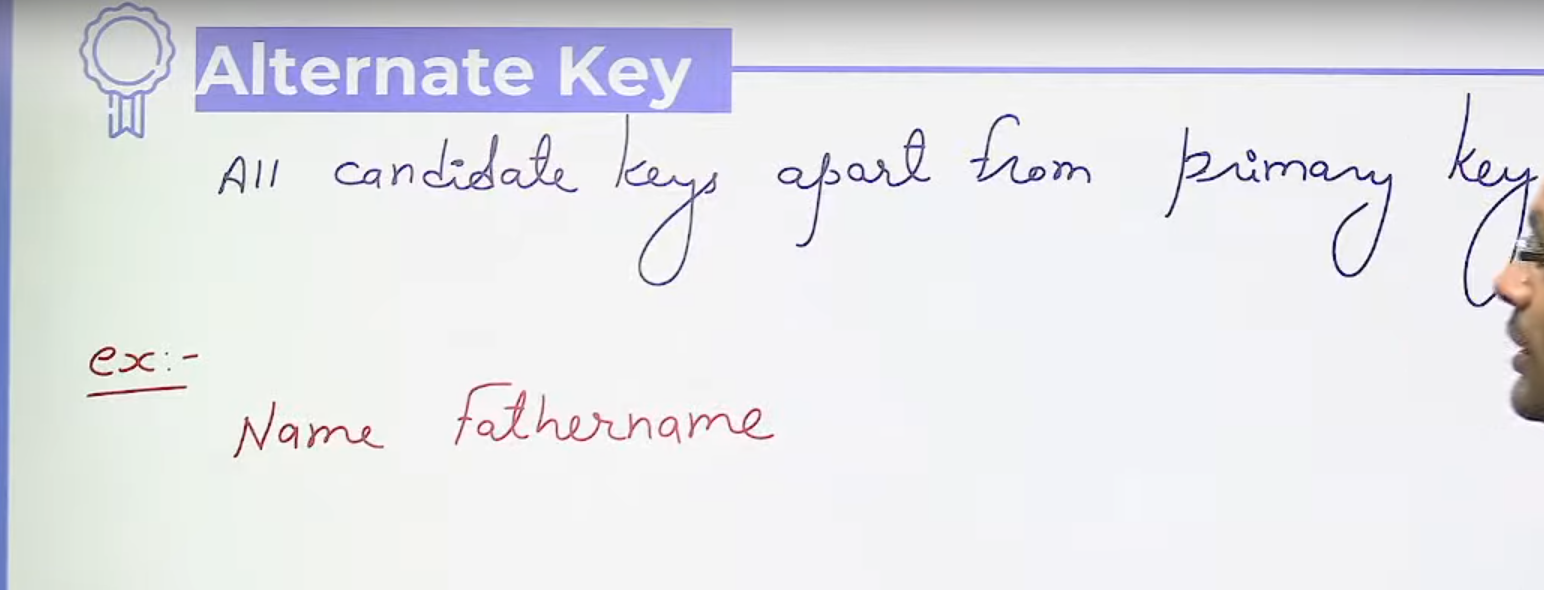 Alternate Key
All candidate keys apart from primary key
ex:-
Name Fathername